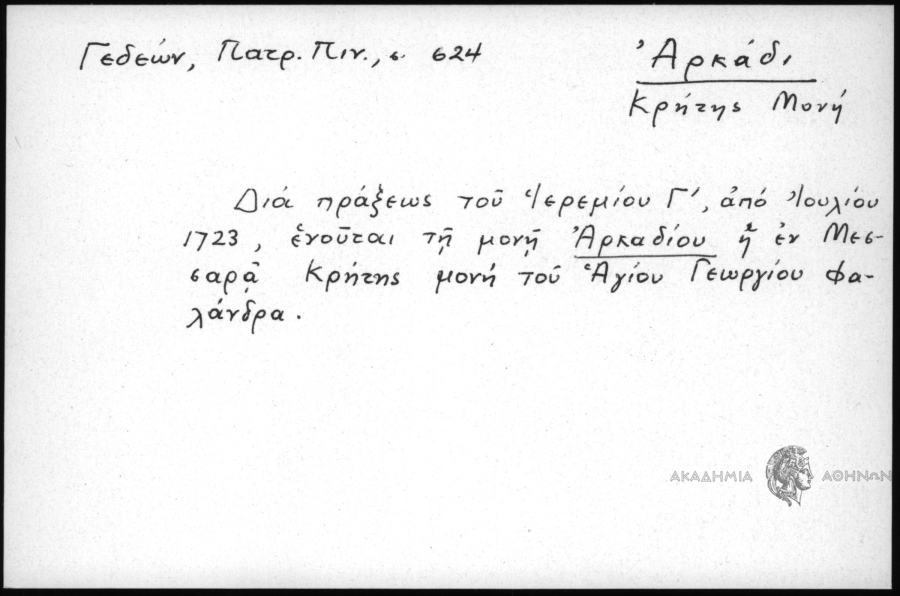 Γεδεών, Πατρ. Πιν., σ. 624
Ἀρκάδι
Κρήτης Μονή
Διά πράξεως τοῦ Ἱερεμίου Γ', ἀπό Ἰουλίου
1723, ἑνοῦται τῇ μονῇ Ἀρκαδίου ἡ ἐν Μεσ-
σαρᾷ Κρήτης μονή τοῦ Ἁγίου Γεωργίου Φα-
λάνδρα.
ΑΚΑΔΗΜΙΑ ΑΘΗΝΩΝ